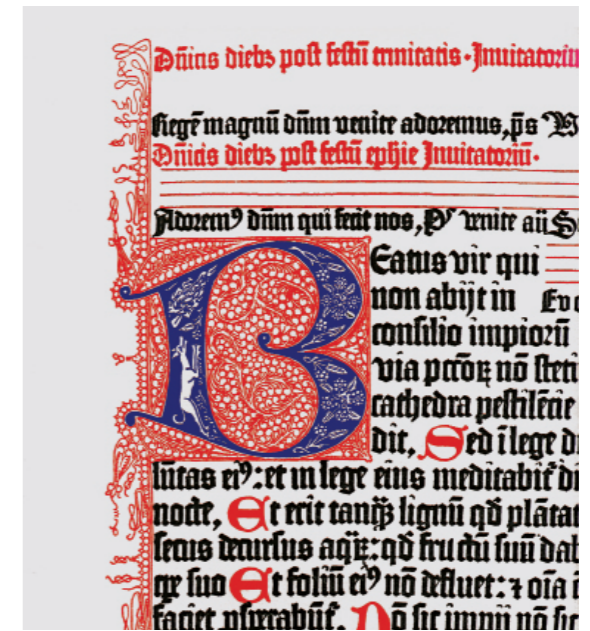 Dñicis diebꝫ post festū trinitatis · Inuitatoriu
Regē magnū dñm venite adoremus, p̄s
Dñicis diebꝫ post festū ephie Inuitatoriū·
Adoremꝰ dñm qui fecit nos, P̄s venite aū S
Beatus vir qui
non abijt in Evo
consilio impioꝝ
via pctōꝝ nō steti
cathedra pestilētie
dit, Sed ī lege d
lūtas eiꝰ: et in lege eius meditabit̄ di
nocte, Et erit tanq̄ lignū qd̄ plātat
secus decursus aqꝝ: qd̄ fructū suū dab
tpe suo Et foliū eiꝰ nō defluet: ⁊ oīa
faciet psperabūt̄, Nō sic impij nō sic